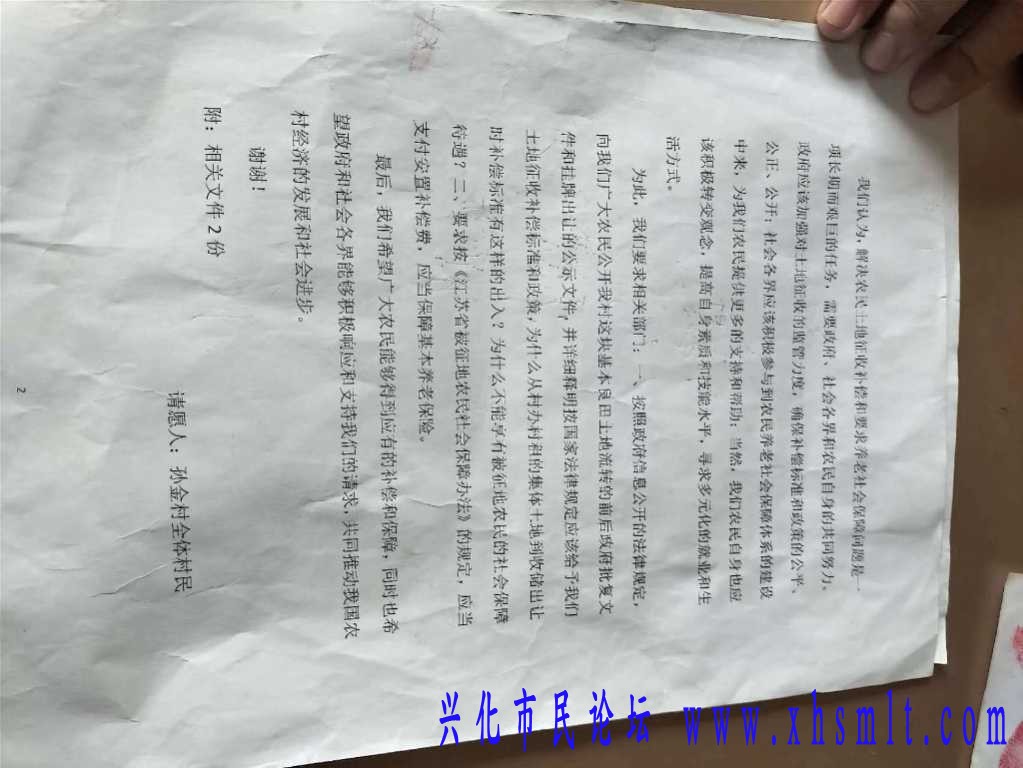 我们认为，解决农民土地征收补偿和要求养老社会保障问题是一
项长期而艰巨的任务，需要政府、社会各界和农民自身的共同努力。
政府应该加强对土地征收的监管力度，确保补偿标准和政策的公平、
公正、公开；社会各界应该积极参与到农民养老社会保障体系的建设
中来，为我们农民提供更多的支持和帮助；当然，我们农民自身也应
该积极转变观念，提高自身素质和技能水平，寻求多元化的就业和生
活方式。
为此，我们要求相关部门：一、按照政府信息公开的法律规定，
向我们广大农民公开我村这块基本良田土地流转的前后政府批复文
件和挂牌出让的公示文件，并详细释明按国家法律规定应该给予我们
土地征收补偿标准和政策，为什么从村办村租的集体土地到收储出让
时补偿标准有这样的出入？为什么不能享有被征地农民的社会保障
待遇？三、要求按《江苏省被征地农民社会保障办法》的规定，应当
支付安置补偿费，应当保障基本养老保险。
最后，我们希望广大农民能够得到应有的补偿和保障，同时也希
望政府和社会各界能够积极响应和支持我们的请求，共同推动我国农
村经济的发展和社会进步。
谢谢！
附：相关文件2份
请愿人：孙金村全体村民
2
兴化市民论坛 www.xhsmlt.com